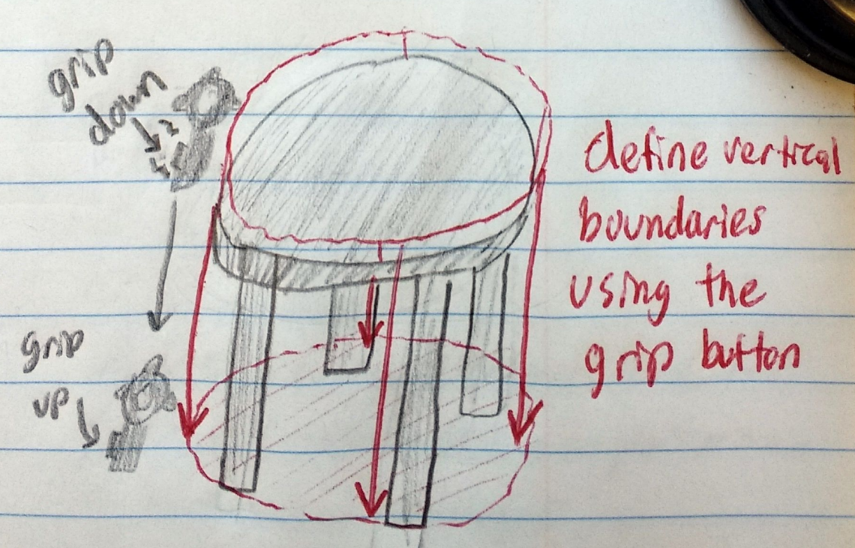 grip
down
define vertical
boundaries
using the
grip button
grip
up